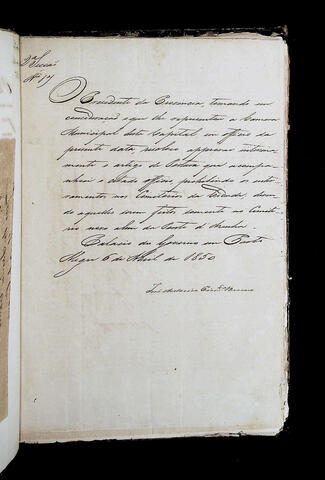 2ª Secção
Nº 17
O Presidente da Provincia, tomando em
consideração o que lhe representou a Camara
Municipal desta Capital em officio da
presente data, resolve approvar interina
mente o artigo de Postura que acompa
nhou o citado officio prohibindo os enter
ramentos no Cemiterio da Cidade, deven
do aquelles serem feitos somente no Cemite
rio novo alem da Azenha.
Palacio do Governo em Porto
Alegre 6 de Abril de 1850